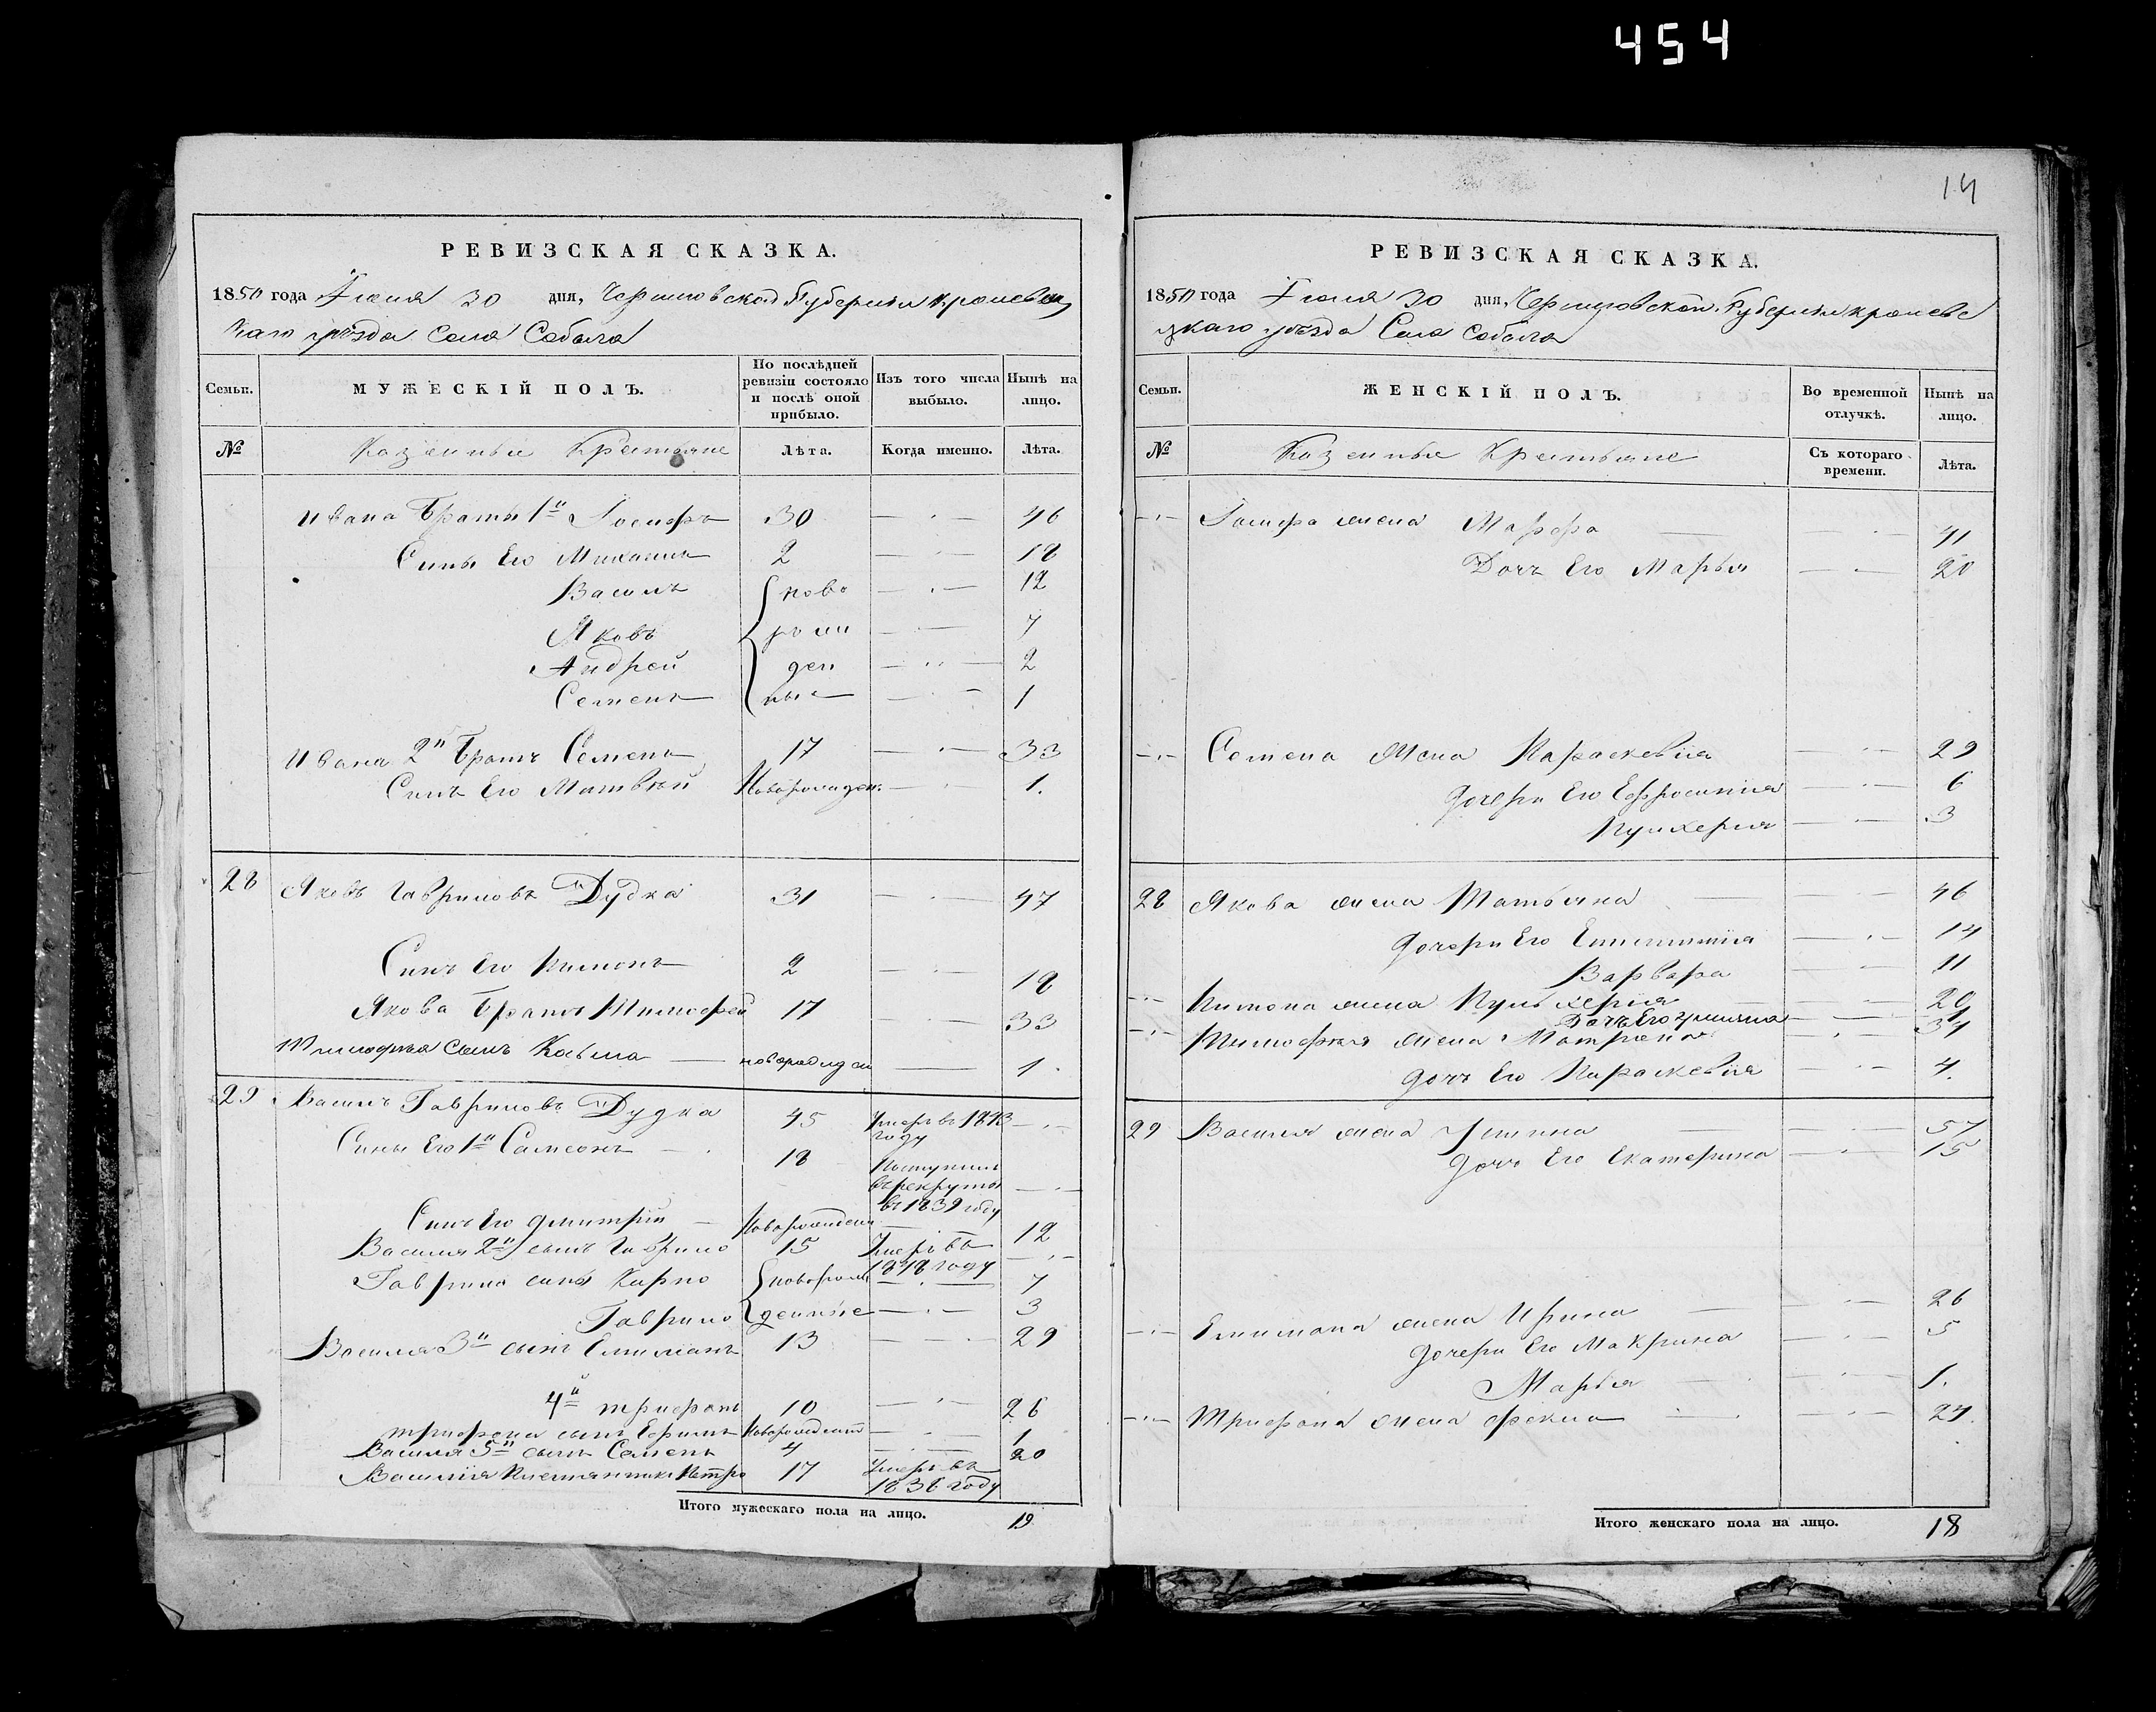 454
14
РЕВИЗСКАЯ СКАЗКА.
1850 года Июня 30 дня, Черниговской Губернии Кролевец
каго уѣзда Села Собыча
Семьи. МУЖЕСКІЙ ПОЛЪ. По послѣдней ревизіи состояло и послѣ оной прибыло. Изъ того числа выбыло. Нынѣ на лицо.
№ Казенные Крестьяне Лѣта. Когда именно. Лѣта.
Ивана Братья 1й Іосифъ 30 — 46
Сины Его Михаилъ 2 — 18
Василь ново — 12
Яковъ рож — 7
Андрей ден — 2
Семенъ ные — 1
Ивана 2й Братъ Семенъ 17 — 33
Синъ Его Матвѣй Новорожден. — 1.
28 Яковъ Гавриловъ Дудка 31 — 47
Синъ Его Пимонъ 2 — 18
Якова Братъ Тимофей 17 — 33
Тимофея Сынъ Косьма — новорожден — 1.
29 Василь Гавриловъ Дудка 45 Умеръ въ 1843 году —
Сины Его 1й Самсонъ — 18 Поступилъ въ рекруты въ 1839 году —
Синъ Его Дмитрій — Новорожден — 12
Василія 2й сынъ Гаврило 15 Умеръ въ 1848 году —
Гаврила сины Карпо новорож — 7
Гаврило денные — 3
Василія 3й сынъ Емиліанъ 13 — 29
4й Трифонъ 10 — 26
Трифона сынъ Ефимъ Новорожден — 1
Василія 5й сынъ Семенъ 4 — 20
Василія Племянникъ Петро 17 Умеръ въ 1836 году
Итого мужескаго пола на лицо. 19
РЕВИЗСКАЯ СКАЗКА.
1850 года Июня 30 дня, Черниговской Губернии кролеве
цкаго уѣзда Села Собыча
Семьи. ЖЕНСКІЙ ПОЛЪ. Во временной отлучкѣ. Нынѣ на лицо.
№ Казенные Крестьяне Съ котораго времени. Лѣта.
Іосифа жена Марфа — 41
Дочь Его Марья — 20
Семена Жена Параскевія — 29
дочери Его Ефросинія — 6
Пульхерія — 3
28 Якова жена Татьяна — 46
дочери Его — 14
Варвара — 11
Пимона жена Пульхерія — 20
Дочь Его — 1
Тимофея жена Матрона — 34
дочь Его Параскевія — 4.
29 Василія жена Устина — 57
дочь Его Екатерина — 15
Емилиана жена Ирина — 26
дочери Его Макрина — 5
Марья — 1.
Трифона жена Фекла — 24
Итого женскаго пола на лицо. 18